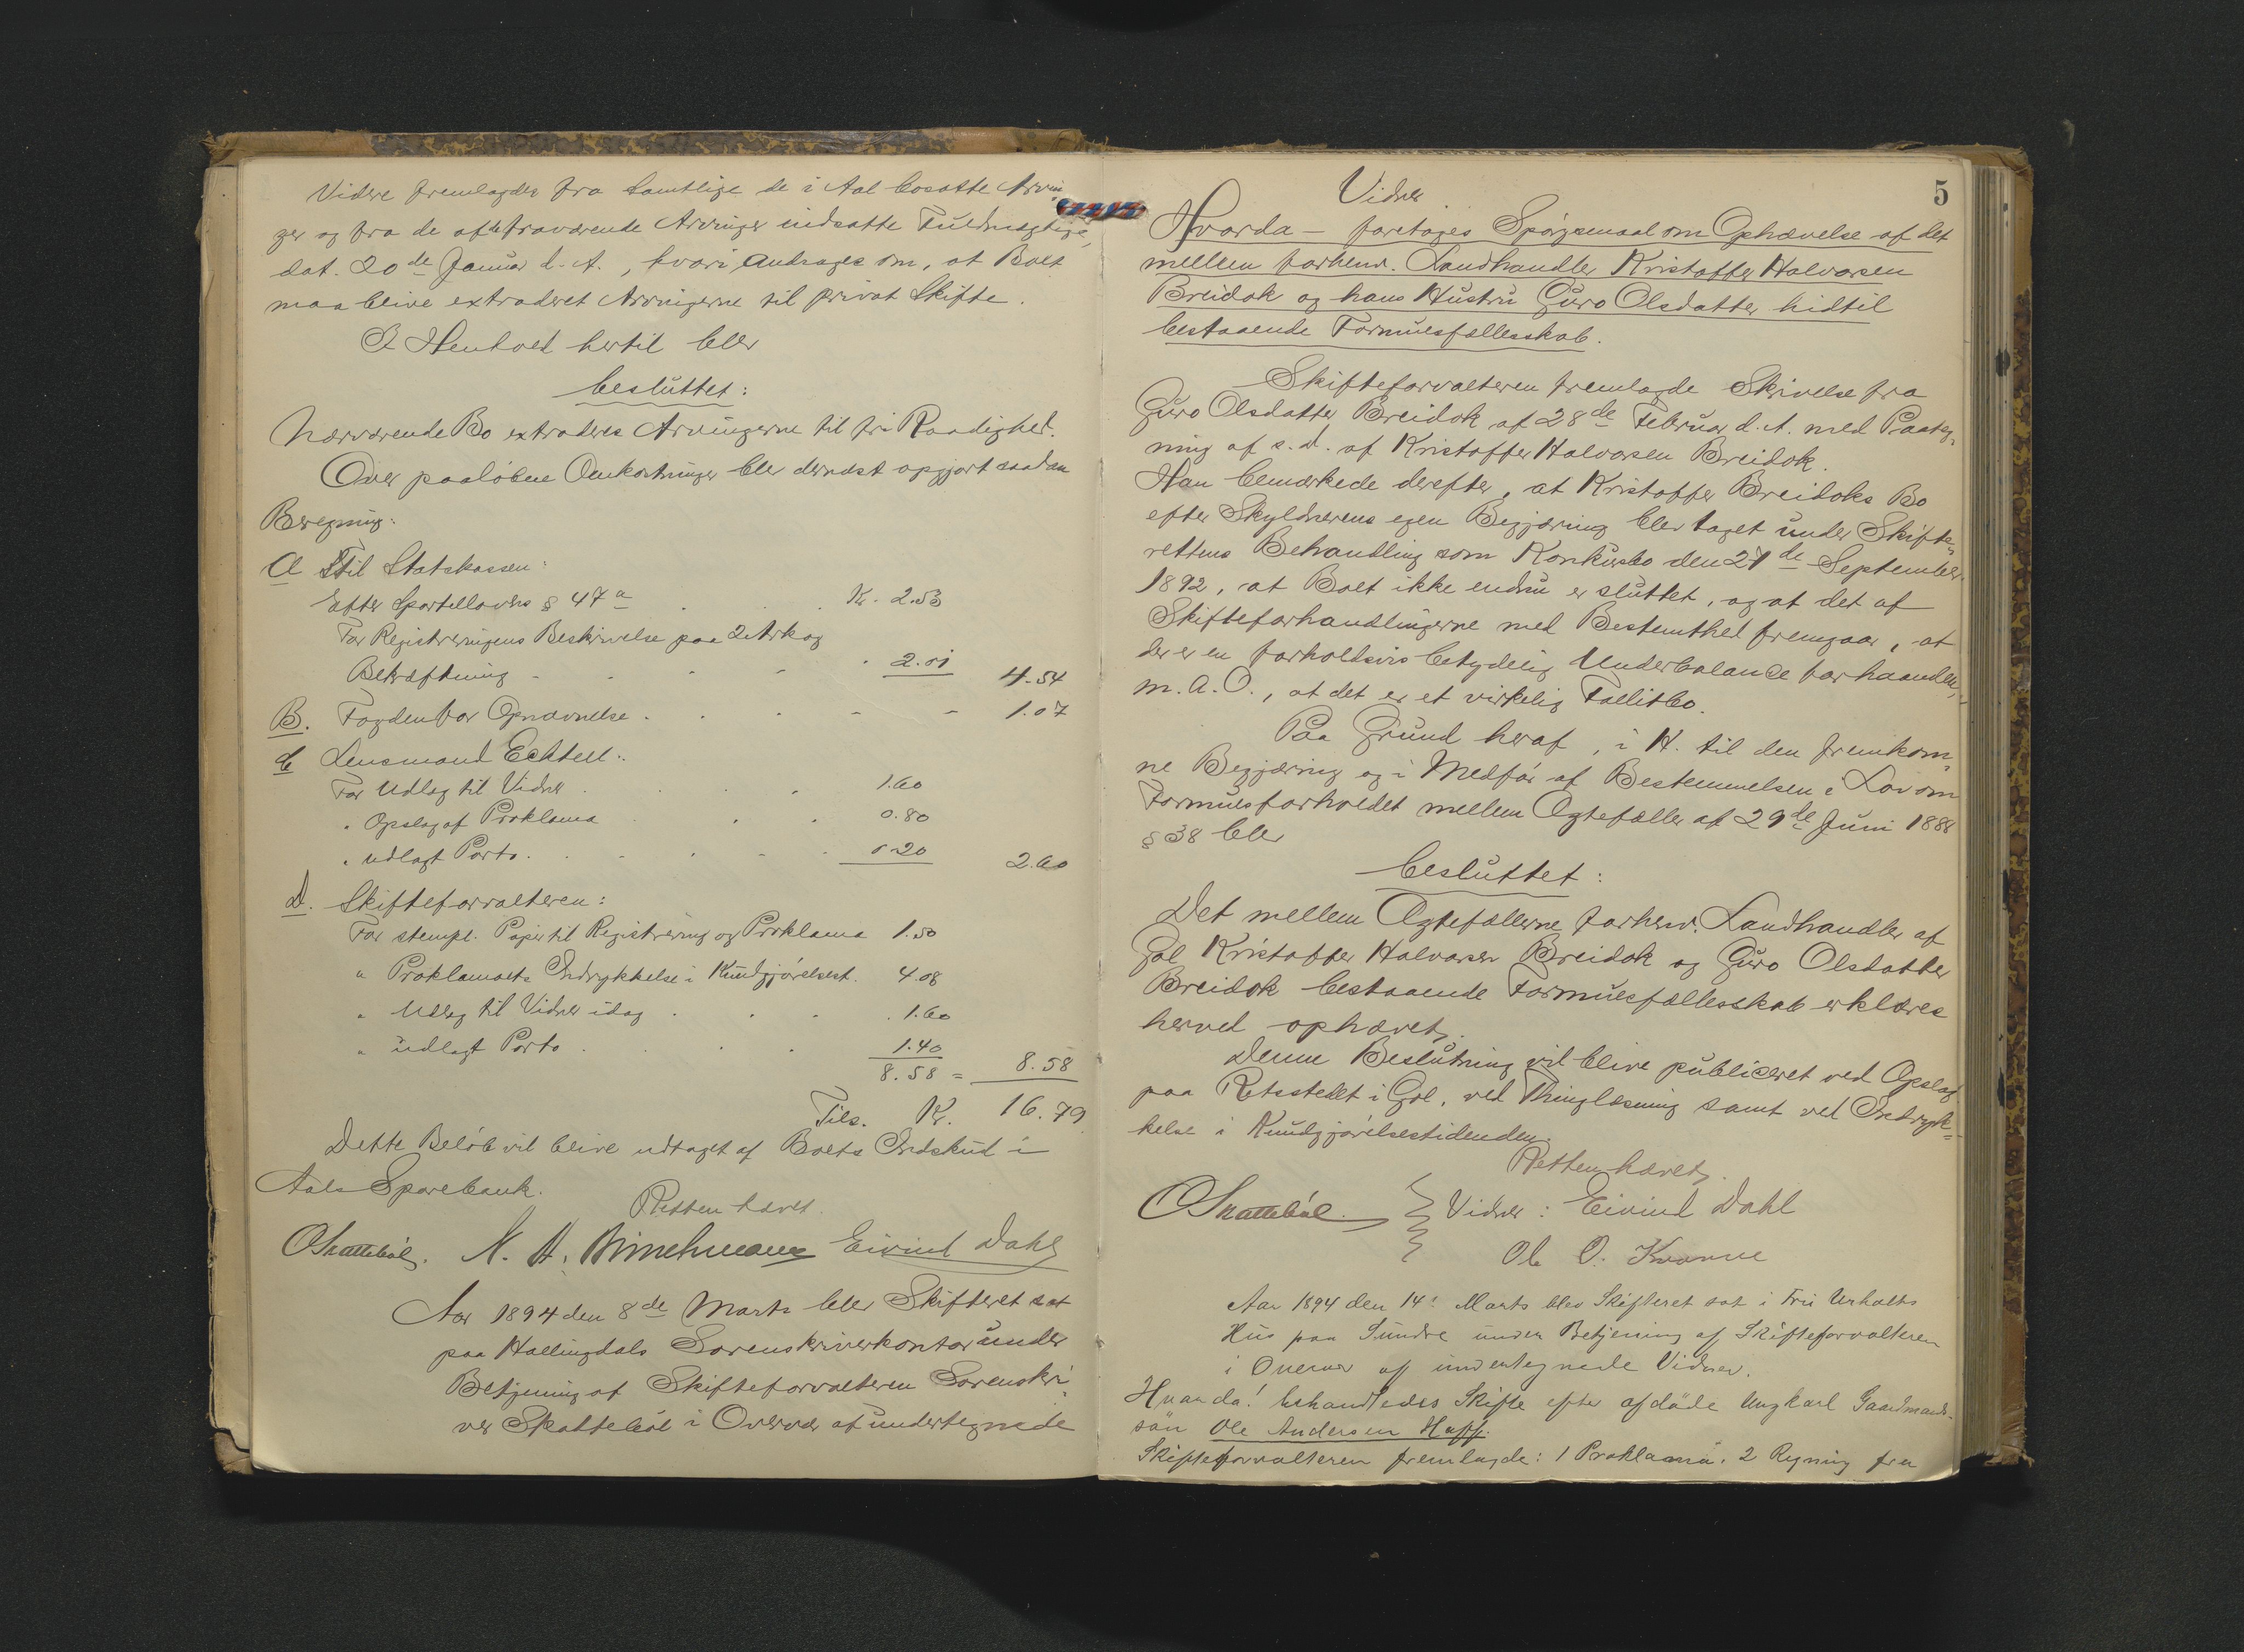 Videre fremlagdes fra samtlige de i Aal bosatte Arvin-
ger og fra de af de fraværende Arvinger indsatte Fuldmægtige,
dat. 20de Januar d. A., hvori andrages om, at Boet
maa blive extraderet Arvingerne til privat Skifte.
I Henhold hertil blev
besluttet:
Nærværende Bo extraderes Arvingerne til fri Raadighed.
Over paaløbne Omkostninger blev dernæst opgjort saadan
Beregning:
A Til Statskassen:
Efter Sportellovens § 47a . . . Kr. 2.53
For Registreringens Beskrivelse paa 2 Ark og
Bekræftning - - - - 2.01 4.54
B. Fogden for Opnævnelse . . . - - 1.07
C Lensmand Echtell:
For Udlæg til Vidner . . . 1.60
" Opslag af Proklama . . . 0.80
" udlagt Porto . . . 0.20 2.60
D. Skifteforvalteren:
For stempl. Papir til Registrering og Proklama 1.50
" Proklamaets Indrykkelse i Kundgjørelsest. 4.08
" Udlæg til Vidner idag . . . 1.60
" udlagt Porto . . . 1.40
8.58 = 8.58
Tils. Kr. 16.79
Dette Beløb vil blive udtaget af Boets Indskud i
Aals Sparebank.
Retten hævet.
OSkattebøl. N. H. Eivind Dahl
Aar 1894 den 8de Marts blev Skifteret sat
paa Hallingdals Sorenskriverkontor under
Betjening af Skifteforvalteren Sorenskri-
ver Skattebøl i Overvær af undertegnede
5
Vidner.
Hvorda - foretages Spørgsmaal om Ophævelse af det
mellem forhenv. Landhandler Kristoffer Halvorsen
Breidok og hans Hustru Guro Olsdatter hidtil
bestaaende Formuesfællesskab.
Skifteforvalteren fremlagde Skrivelse fra
Guro Olsdatter Breidok af 28de Februar d. A. med Paateg-
ning af s. d. af Kristoffer Halvorsen Breidok.
Han bemærkede derefter, at Kristoffer Breidoks Bo
efter Skyldnerens egen Begjæring blev taget under Skifte-
rettens Behandling som Konkursbo den 27de September
1892, at Boet ikke endnu er sluttet, og at det af
Skifteforhandlingerne med Bestemthed fremgaar, at
der er en forholdsvis betydelig Underbalance forhaanden,
m. A. O., at det er et virkelig Fallitbo.
Paa Grund heraf, i H. til den fremkom-
ne Begjæring og i Medfør af Bestemmelsen i Lov om
Formuesforholdet mellem Ægtefæller af 29de Juni 1888
§ 38 blev
besluttet:
Det mellem Ægtefællerne forhenv. Landhandler af
Gol Kristoffer Halvorsen Breidok og Guro Olsdatter
Breidok bestaaende Formuesfællesskab erklæres
herved ophævet.
Denne Beslutning vil blive publiceret ved Opslag
paa Retsstedet i Gol, ved Thinglæsning samt ved Indryk-
kelse i Kundgjørelsestidenden.
Retten hævet.
OSkattebøl. Vidner: Eivind Dahl
Ole O. Kvanne
Aar 1894 den 14: Marts blev Skifteret sat i Fru
Hus paa Sundre under Betjening af Skifteforvalteren
i Overvær af undertegnede Vidner.
Hvorda! behandledes Skifte efter afdøde Ungkarl Gaardmands-
søn Ole Andersen
Skifteforvalteren fremlagde: 1 Proklama. 2 Regning fra